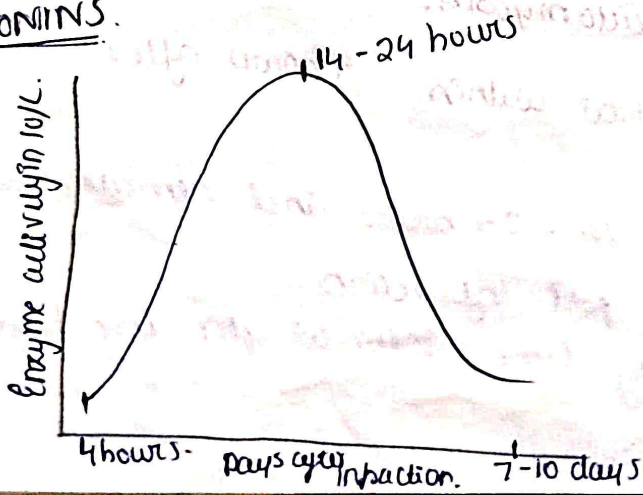 ONINS.
14 - 24 hours
Enzyme activity in IU/L.
4 hours.
Days after Infraction.
7-10 days